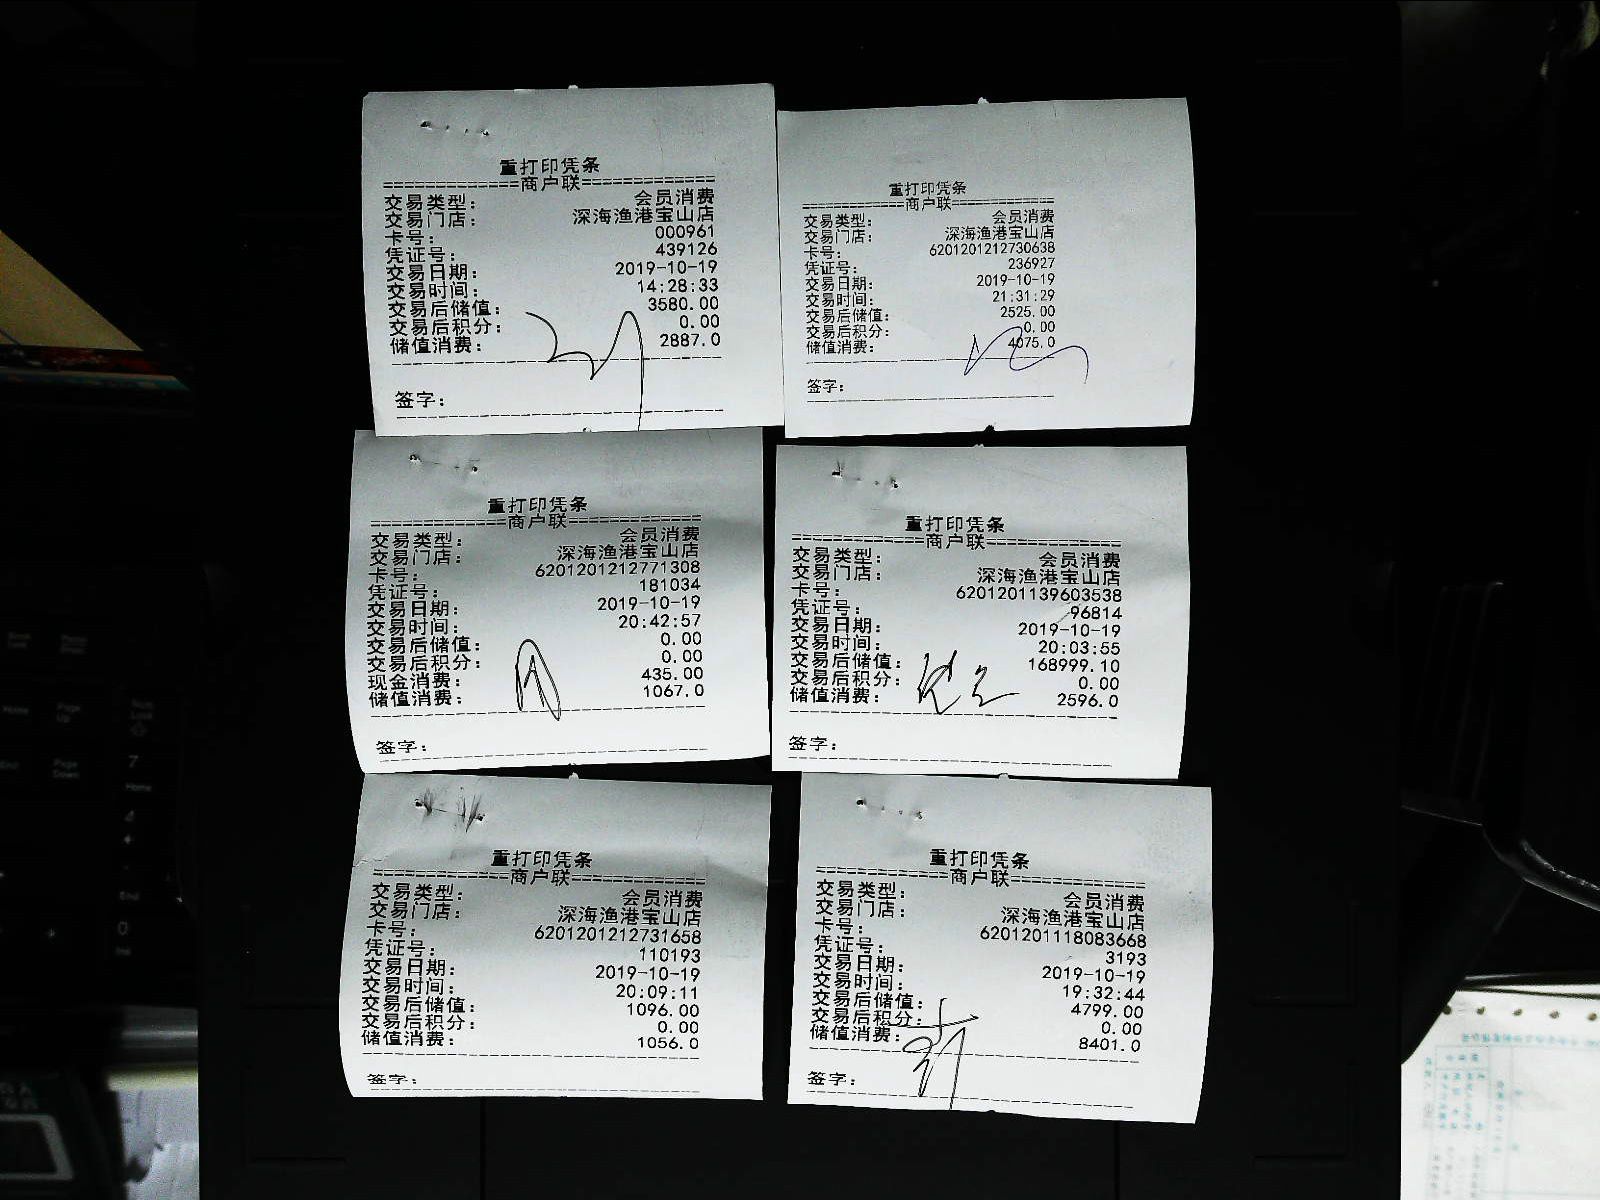 重打印凭条
=============商户联=============
交易类型: 会员消费
交易门店: 深海渔港宝山店
卡号: 000961
凭证号: 439126
交易日期: 2019-10-19
交易时间: 14:28:33
交易后储值: 3580.00
交易后积分: 0.00
储值消费: 2887.0
签字:
重打印凭条
=============商户联=============
交易类型: 会员消费
交易门店: 深海渔港宝山店
卡号: 6201201212730638
凭证号: 236927
交易日期: 2019-10-19
交易时间: 21:31:29
交易后储值: 2525.00
交易后积分: 0.00
储值消费: 4075.0
签字:
重打印凭条
=============商户联=============
交易类型: 会员消费
交易门店: 深海渔港宝山店
卡号: 6201201212771308
凭证号: 181034
交易日期: 2019-10-19
交易时间: 20:42:57
交易后储值: 0.00
交易后积分: 0.00
现金消费: 435.00
储值消费: 1067.0
签字:
重打印凭条
=============商户联=============
交易类型: 会员消费
交易门店: 深海渔港宝山店
卡号: 6201201139603538
凭证号: 96814
交易日期: 2019-10-19
交易时间: 20:03:55
交易后储值: 168999.10
交易后积分: 0.00
储值消费: 2596.0
签字:
重打印凭条
=============商户联=============
交易类型: 会员消费
交易门店: 深海渔港宝山店
卡号: 6201201212731658
凭证号: 110193
交易日期: 2019-10-19
交易时间: 20:09:11
交易后储值: 1096.00
交易后积分: 0.00
储值消费: 1056.0
签字:
重打印凭条
=============商户联=============
交易类型: 会员消费
交易门店: 深海渔港宝山店
卡号: 6201201118083668
凭证号: 3193
交易日期: 2019-10-19
交易时间: 19:32:44
交易后储值: 4799.00
交易后积分: 0.00
储值消费: 8401.0
签字:
Home
Page Up
End
Page Down
7
Home
4
End
0